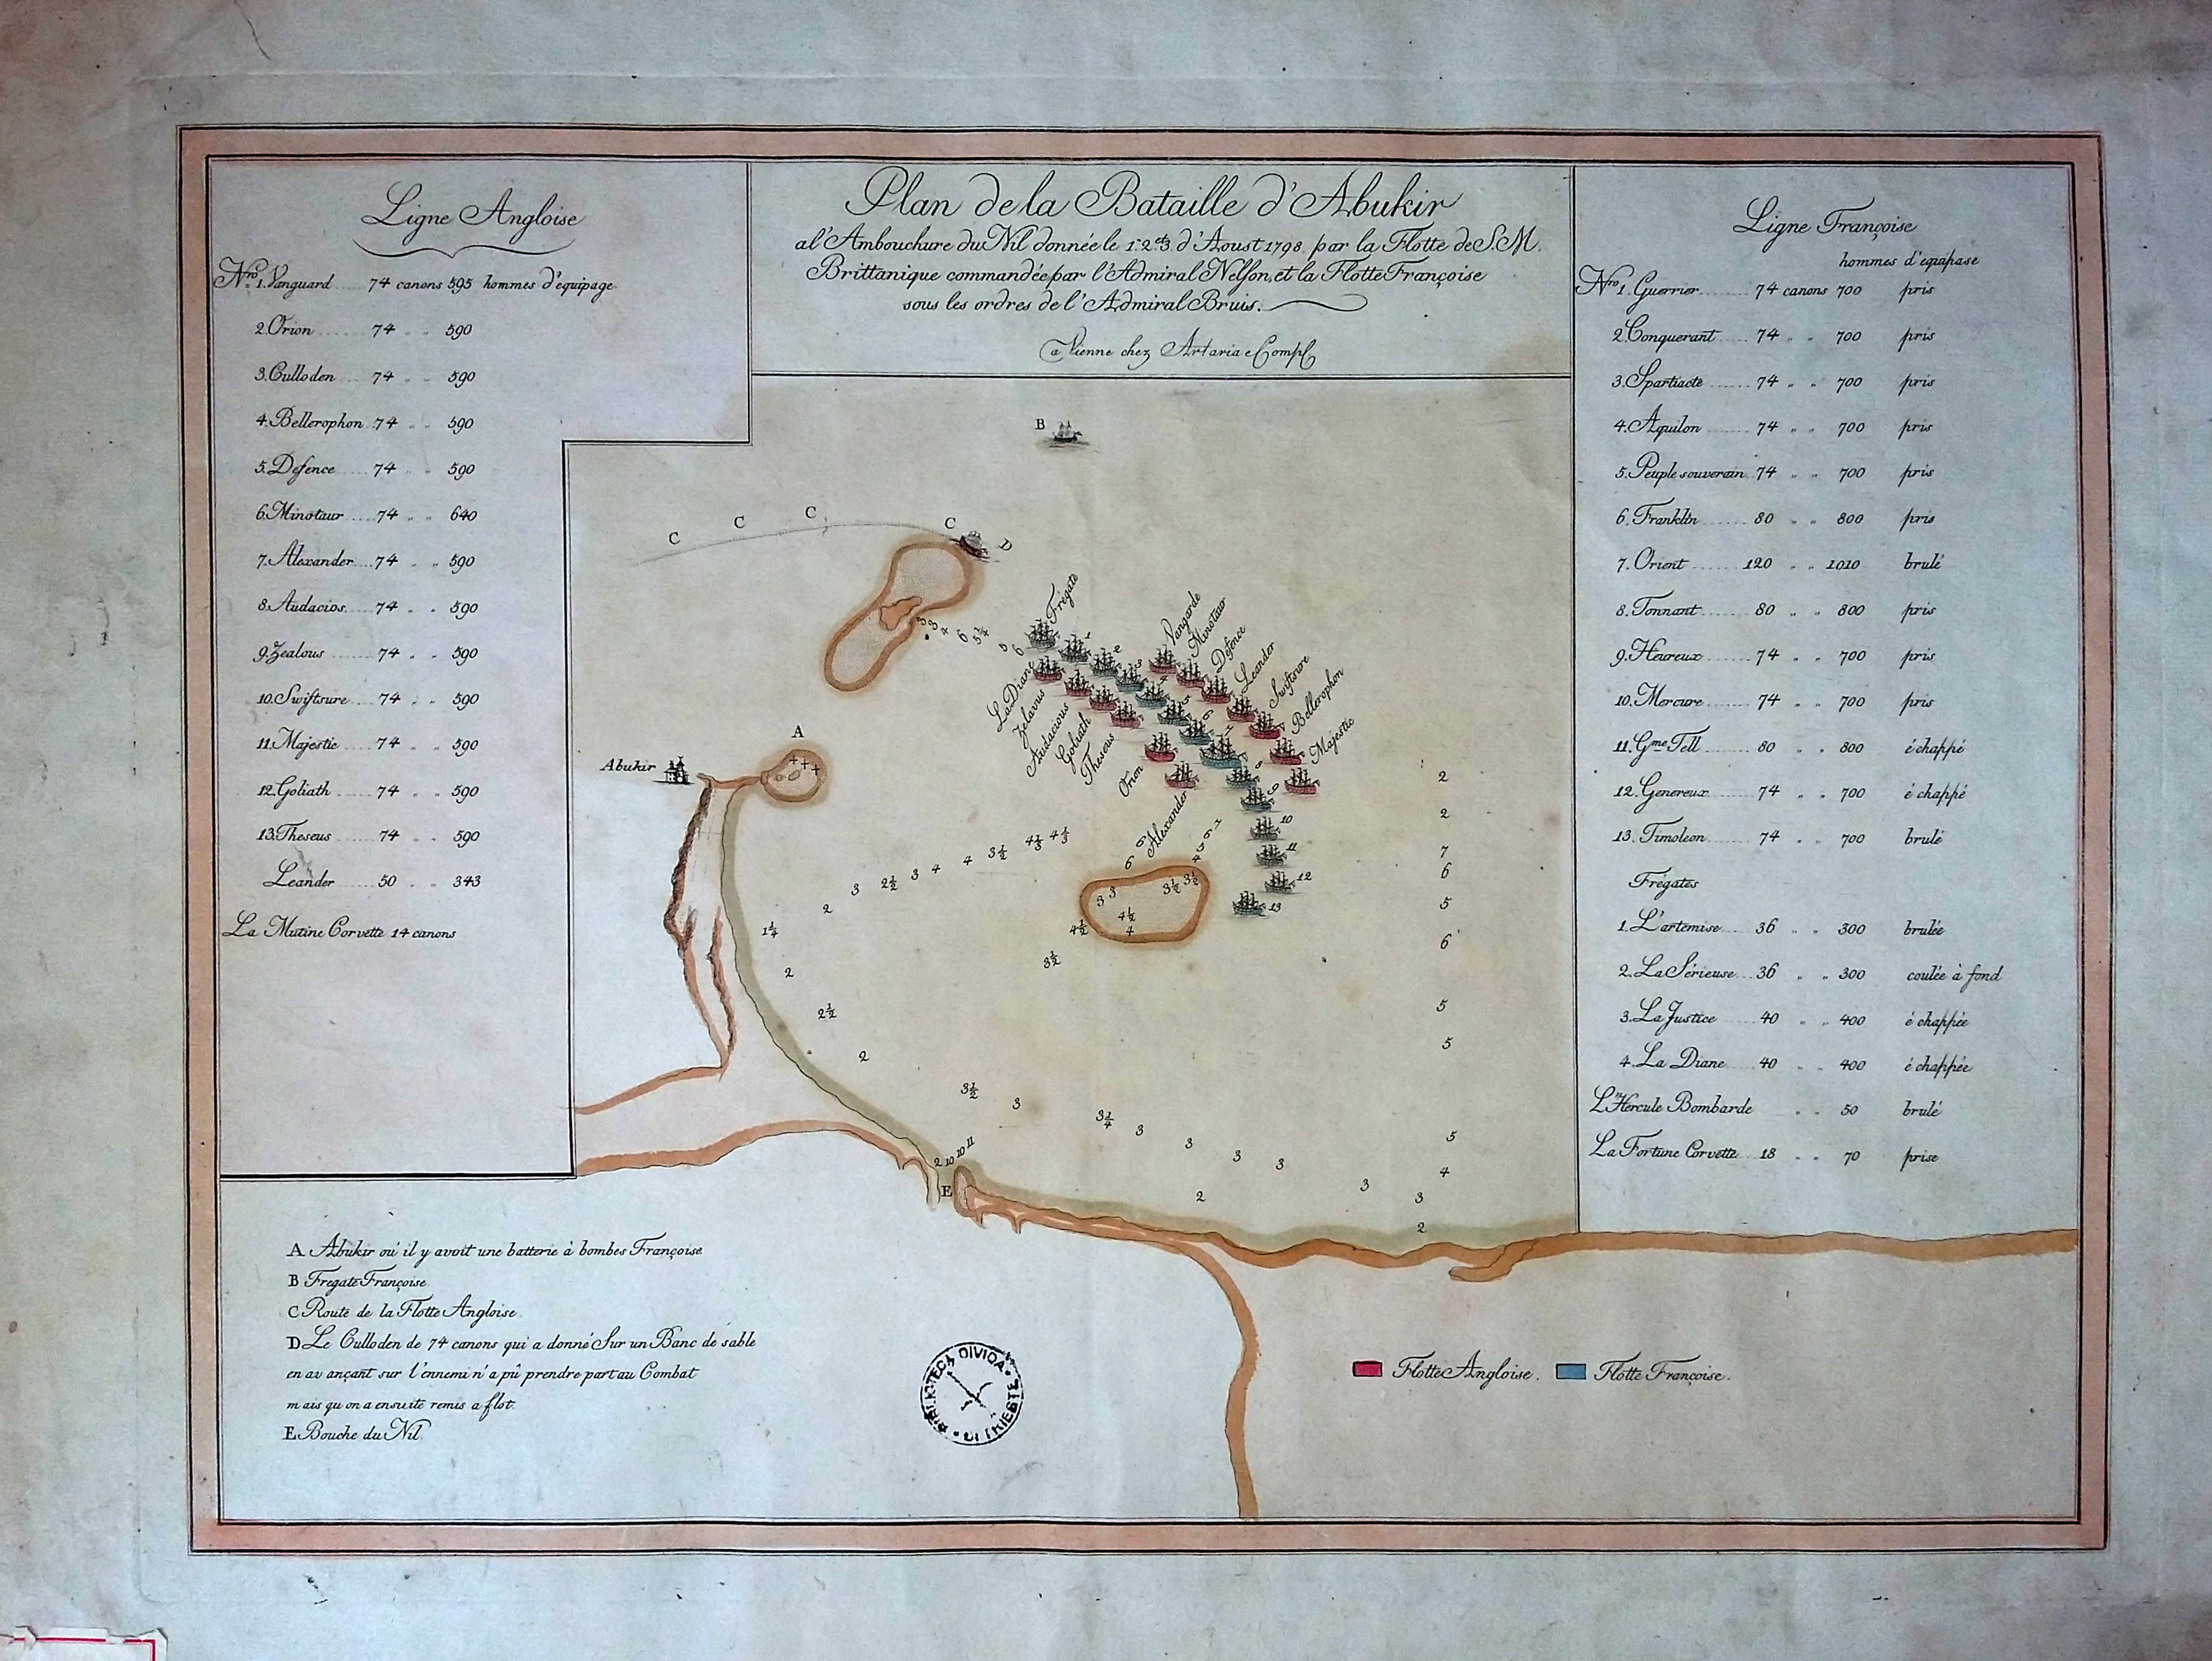 Plan de la Bataille d'Abukir
a l'Ambouchure du Nil donnée le 1. 2. et 3. d'Aoust 1798. par la Flotte de S. M.
Brittanique commandée par l'Admiral Nelson, et la Flotte Françoise
sous les ordres de l'Admiral Bruis.
a Vienne chez Artaria e Comp
Ligne Angloise
Nro. 1. Vanguard 74 canons 595 hommes d'équipage
2. Orion 74 " " 590
3. Culloden 74 " " 590
4. Bellerophon 74 " " 590
5. Defence 74 " " 590
6. Minotaur 74 " " 640
7. Alexander 74 " " 590
8. Audacios 74 " " 590
9. Zealous 74 " " 590
10. Swiftsure 74 " " 590
11. Majestic 74 " " 590
12. Goliath 74 " " 590
13. Theseus 74 " " 590
Leander 50 " " 343
La Mutine Corvette 14 canons
Ligne Françoise
hommes d'equipase
Nro 1. Guerrier 74 canons 700 pris
2. Conquerant 74 " " 700 pris
3. Spartiacte 74 " " 700 pris
4. Aquilon 74 " " 700 pris
5. Peuple souverain 74 " " 700 pris
6. Franklin 80 " " 800 pris
7. Orient 120 " " 1010 brulé
8. Tonnant 80 " " 800 pris
9. Heureux 74 " " 700 pris
10. Mercure 74 " " 700 pris
11. Gme Tell 80 " " 800 échappé
12. Genereux 74 " " 700 échappé
13. Timoleon 74 " " 700 brulé
Frégates
1. L'artemise 36 " " 300 brulée
2. La Sérieuse 36 " " 300 coulée à fond
3. La Justice 40 " " 400 échappée
4. La Diane 40 " " 400 échappée
L'Hercule Bombarde " " 50 brulé
La Fortune Corvette 18 " " 70 prise
B
C C C C
D
Frégate
La Diane
Zelavus
Audacious
Goliath
Theseus
Orion
Alexander
Vangarde
Minotaur
Defence
Leander
Swiftsure
Bellerophon
Majestic
1
2
3
10
11
12
13
A
Abukir
3 3 4 6 5¼ 5 6
2
2
7
6
5
6
5
5
5
4
3
2
1¼ 2 2½ 3 4 4 3½ 4⅓ 4⅓
3 3 3½ 3½
4½
4
4½
3½
2
2½
2
3½ 3 3¼ 3 3 3 3 3
2
2 10 10 11
E
A Abukir oú il y avoit une batterie à bombes Françoise
B Fregate Françoise
C Route de la Flotte Angloise
D Le Culloden de 74 canons qui a donné Sur un Banc de sable
en avançant sur l'ennemi n'a pû prendre part au Combat
mais qu on a ensuite remis a flot.
E Bouche du Nil
BIBLIOTECA CIVICA DI TRIESTE
Flotte Angloise. Flotte Françoise.